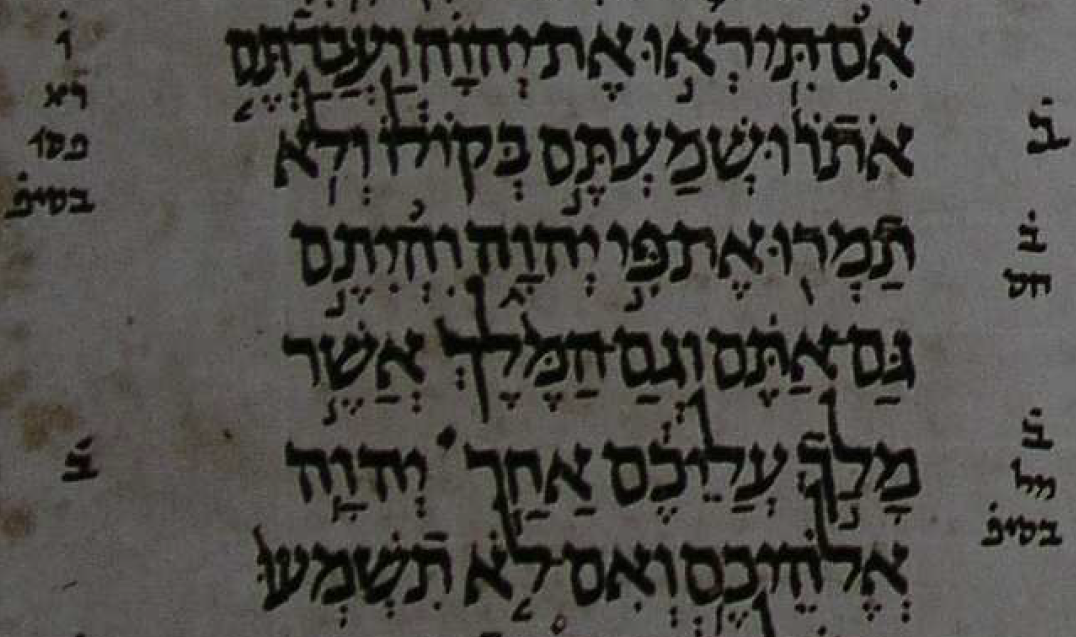 אִם תִּירְאוּ אֶת יְהוָה וַעֲבַדְתֶּם
אֹתוֹ וּשְׁמַעְתֶּם בְּקוֹלוֹ וְלֹא
תַמְרוּ אֶת פִּי יְהוָה וִהְיִתֶם
גַּם אַתֶּם וְגַם הַמֶּלֶךְ אֲשֶׁר
מָלַךְ עֲלֵיכֶם אַחַר יְהוָה
אֱלֹהֵיכֶם וְאִם לֹא תִשְׁמְעוּ
ב
ב
חס
ב
מל
בסיפ
ו
רא
פסו
בסיפ
ב